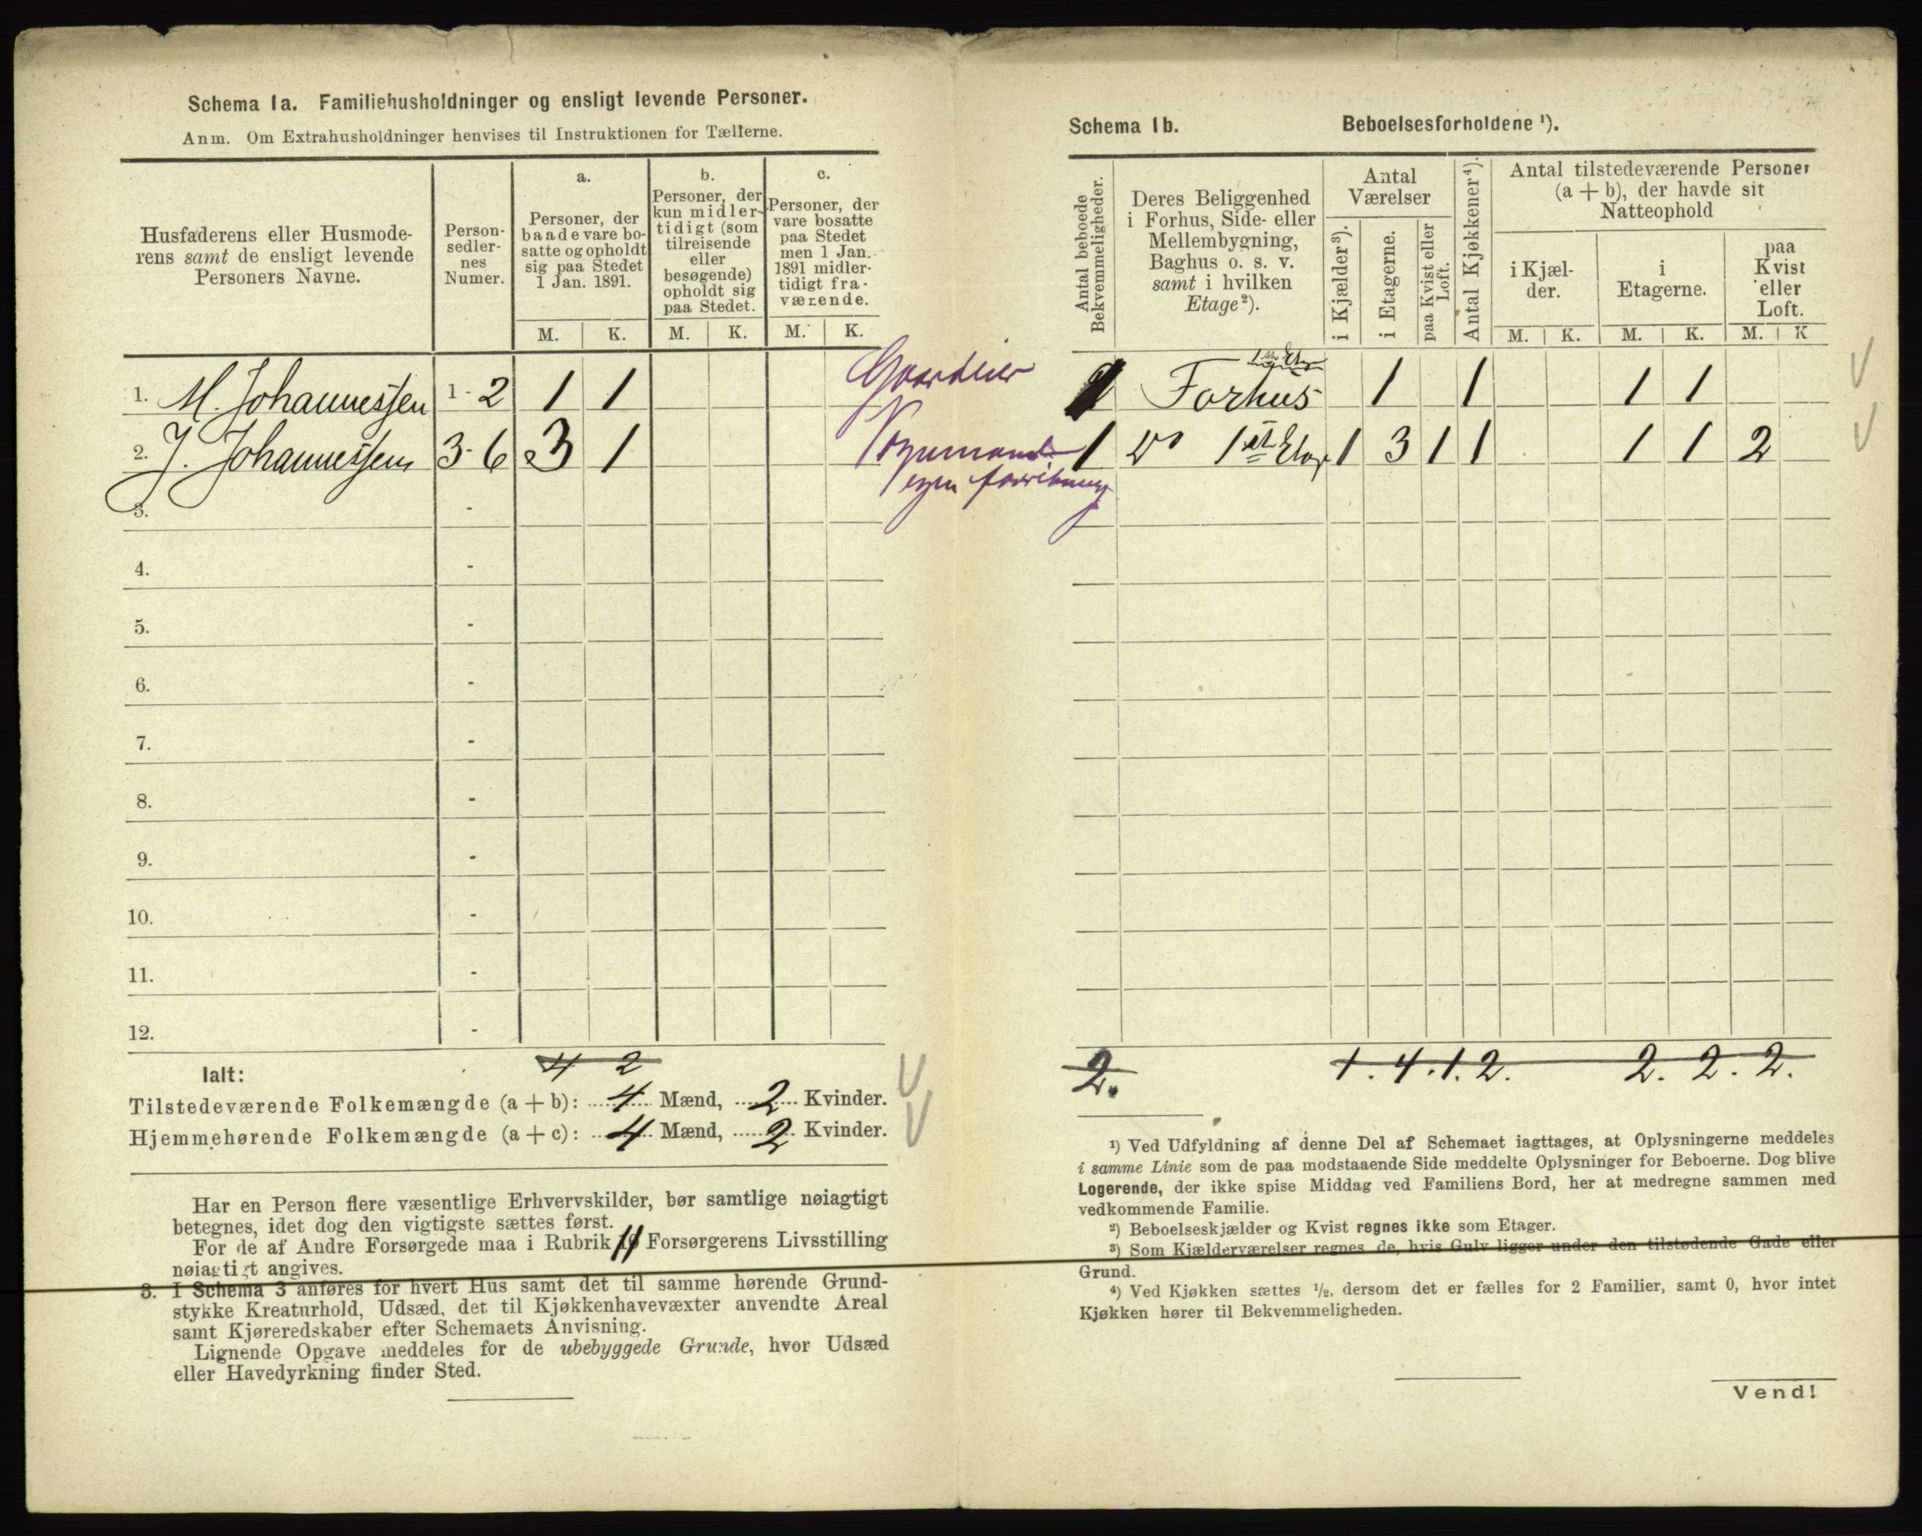 Schema 1a. Familiehusholdninger og ensligt levende Personer.
Anm. Om Extrahusholdninger henvises til Instruktionen for Tællerne.
Husfaderens eller Husmode-
rens samt de ensligt levende
Personers Navne.
Person-
sedler-
nes
Numer.
a.
Personer, der
baade vare bo-
satte og opholdt
sig paa Stedet
1 Jan. 1891.
b.
Personer, der
kun midler-
tidigt (som
tilreisende
eller
besøgende)
opholdt sig
paa Stedet.
c.
Personer, der
vare bosatte
paa Stedet
men 1 Jan.
1891 midler-
tidigt fra-
værende.
M. K. M. K. M. K.
1. M. Johannessen 1-2 1 1
2. J. Johannessen 3-6 3 1
3. -
4. -
5. -
6. -
7. -
8. -
9. -
10. -
11. -
12. -
4 2
Ialt:
Tilstedeværende Folkemængde (a + b): 4 Mænd, 2 Kvinder.
Hjemmehørende Folkemængde (a + c): 4 Mænd, 2 Kvinder.
Har en Person flere væsentlige Erhvervskilder, bør samtlige nøiagtigt
betegnes, idet dog den vigtigste sættes først.
For de af Andre Forsørgede maa i Rubrik 11 Forsørgerens Livsstilling
nøiagtigt angives.
3. I Schema 3 anføres for hvert Hus samt det til samme hørende Grund-
stykke Kreaturhold, Udsæd, det til Kjøkkenhavevæxter anvendte Areal
samt Kjøreredskaber efter Schemaets Anvisning.
Lignende Opgave meddeles for de ubebyggede Grunde, hvor Udsæd
eller Havedyrkning finder Sted.
Schema 1b. Beboelsesforholdene ¹).
Antal beboede
Bekvemmeligheder.
Deres Beliggenhed
i Forhus, Side- eller
Mellembygning,
Baghus o. s. v.
samt i hvilken
Etage²).
Antal
Værelser
i Kjælder³).
i Etagerne.
paa Kvist eller
Loft.
Antal Kjøkkener⁴).
Antal tilstedeværende Personer
(a + b), der havde sit
Natteophold
i Kjæl-
der.
i
Etagerne.
paa
Kvist
eller
Loft.
M. K. M. K. M. K
Forhus 1 1 1 1
1 Do 1st Etag 1 3 1 1 1 1 2
egen
2. 1. 4. 1. 2. 2. 2. 2.
¹) Ved Udfyldning af denne Del af Schemaet iagttages, at Oplysningerne meddeles
i samme Linie som de paa modstaaende Side meddelte Oplysninger for Beboerne. Dog blive
Logerende, der ikke spise Middag ved Familiens Bord, her at medregne sammen med
vedkommende Familie.
²) Beboelseskjælder og Kvist regnes ikke som Etager.
³) Som Kjælderværelser regnes de, hvis Gulv ligger under den tilstødende Gade eller
Grund.
⁴) Ved Kjøkken sættes ½, dersom det er fælles for 2 Familier, samt 0, hvor intet
Kjøkken hører til Bekvemmeligheden.
Vend!